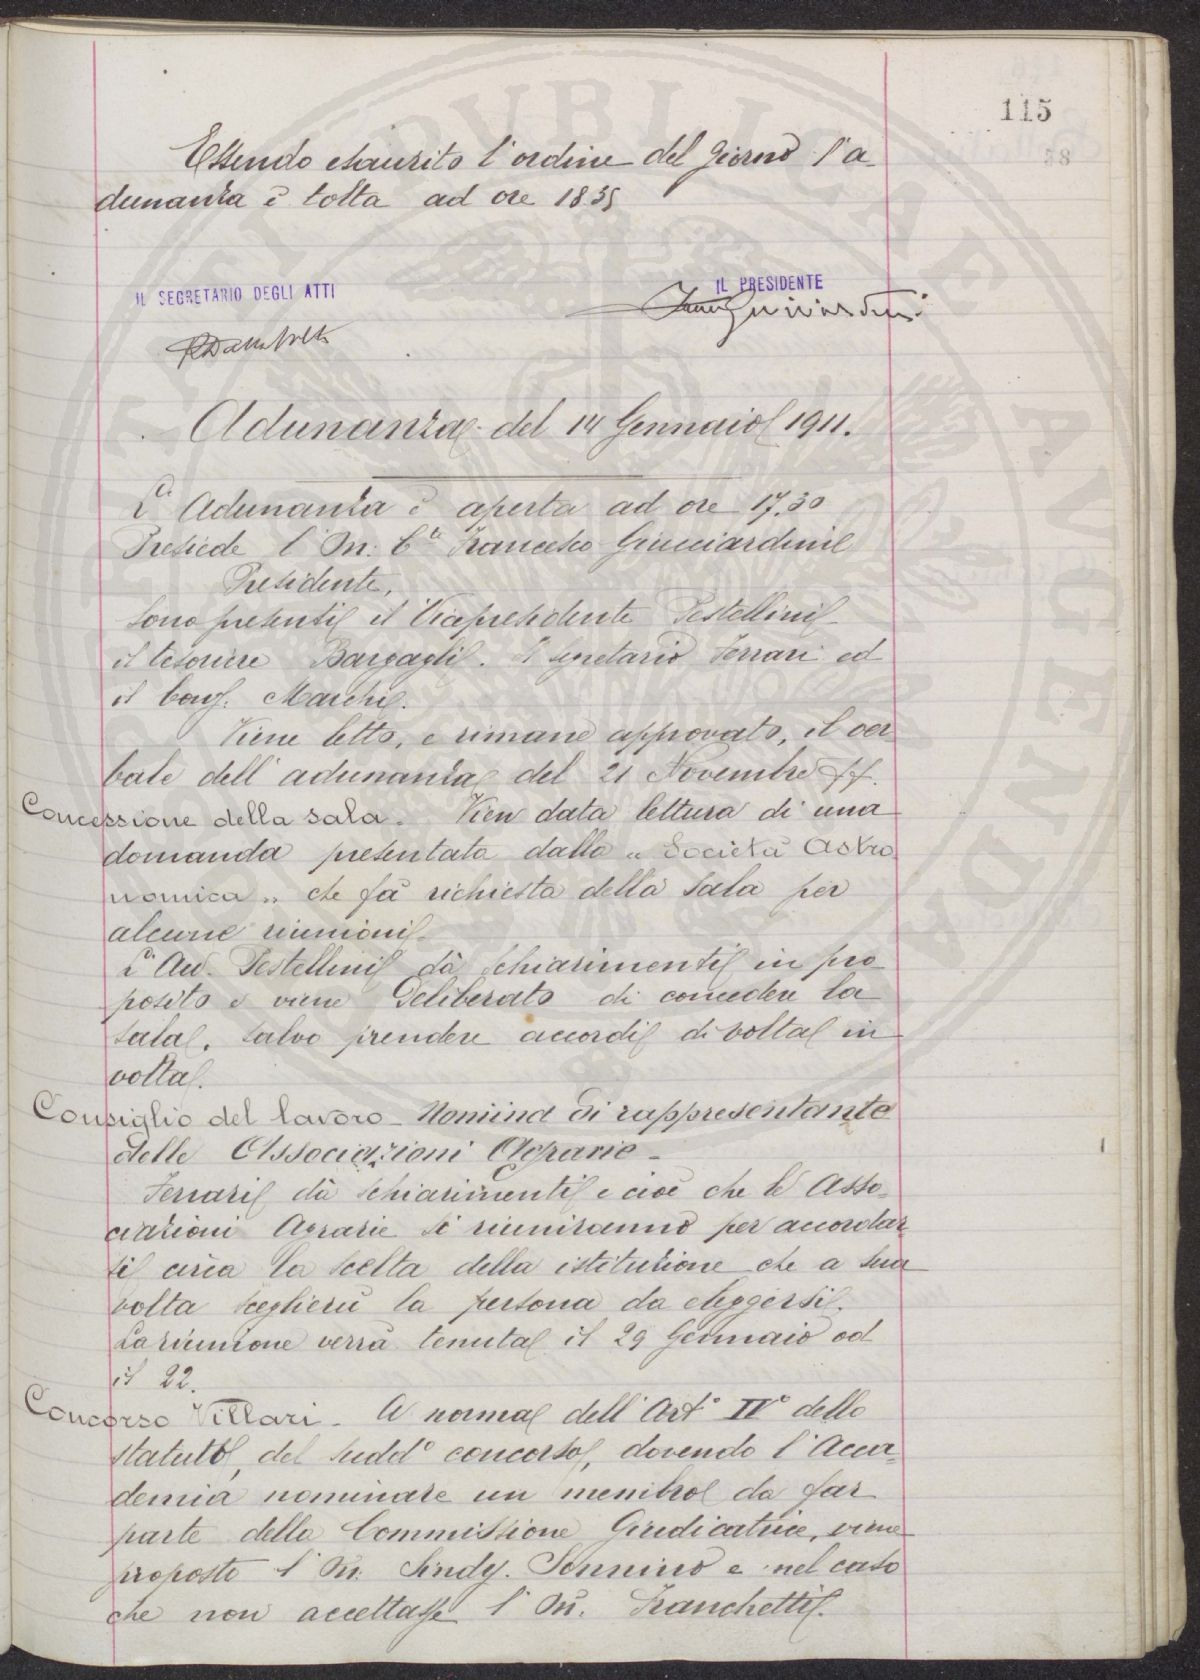 115
Essendo esaurito l'ordine del giorno l'a
dunanza è tolta ad ore 18.35
IL SEGRETARIO DEGLI ATTI
IL PRESIDENTE
Guicciardini
Adunanza del 14 Gennaio 1911.
L'Adunanza è aperta ad ore 17.30
Presiede l'On. Cte Francesco Guicciardini
Presidente.
Sono presenti il Vicepresidente Pestellini
il tesoriere Bargagli. Il segretario Ferrari ed
il Cons. Marchi.
Viene letto, e rimane approvato, il ver
bale dell'adunanza del 21 Novembre
Concessione della sala. Vien data lettura di una
domanda presentata dalla "Società Astro
nomica" che fà richiesta della sala per
alcune riunioni.
L'Avv. Pestellini dà schiarimenti in pro
posito e viene deliberato di concedere la
sala, salvo prendere accordi di volta in
volta.
Consiglio del lavoro - Nomina di rappresentante
delle Associazioni Agrarie -
Ferrari dà schiarimenti e cioè che le Asso-
ciazioni Agrarie si riuniranno per accordar
si circa la scelta della istituzione che a sua
volta sceglierà la persona da eleggersi.
La riunione verrà tenuta il 29 Gennaio od
il 22.
Concorso Villari - A norma dell'Art° IV° dello
statuto, del sudd° concorso, dovendo l'Acca-
demia nominare un membro da far
parte della Commissione Giudicatrice, viene
proposto l'On. Sindy. Sonnino e nel caso
che non accettasse l'On. Franchetti.